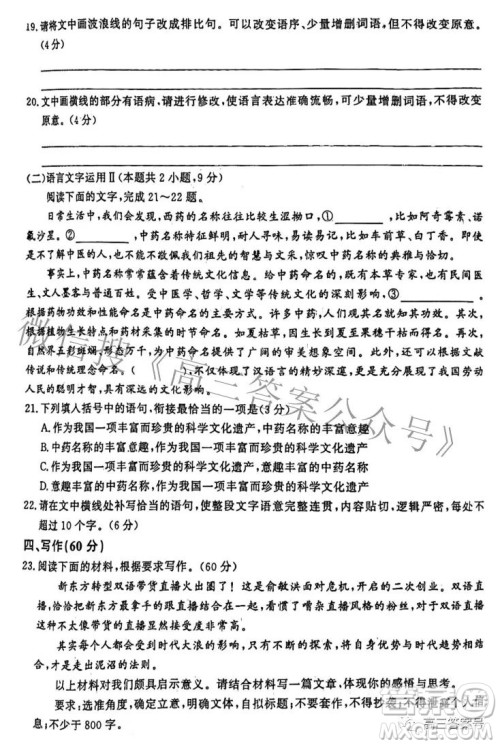 19.请将文中画波浪线的句子改成排比句。可以改变语序、少量增删词语,但不得改变原意。
(4分)
20.文中画横线的部分有语病,请进行修改,使语言表达准确流畅,可少量增删词语,不得改变
原意。(4分)
(二)语言文字运用Ⅱ(本题共2小题,9分)
阅读下面的文字,完成21~22题。
日常生活中,我们会发现,西药的名称往往发音生涩拗口,①________,比如阿奇霉素、诺
氟沙星。②________,中药名称特征鲜明,耐人寻味,易读易记,比如车前草、白丁香。即
使是不了解中医的人,也不能不敬佩我们祖先的智慧与文采,惊叹中药名称的典雅与恰切。
事实上,中药名称常常蕴含着传统文化信息。给中药命名的,既有本草专家,也有民间医
生、文人墨客与普通百姓。受中医学、哲学、文学等传统文化的深刻影响,③________。
根据药物功效和性质命名,体现了传统中医理论的主要观点和中药的用药特色。许多中药,
根据植物生长规律和药材采集的时节命名。如夏枯草,因其到夏至果穗干枯而得名。大
自然界五彩斑斓、形态万千,给中药名称提供了广阔的审美想象空间。这不仅可以依据文献
传说和传统理念命名,( ),具有深远的意义,更体现了汉语言的精妙深邃,更体现我国劳动
人民的聪明才智。
21.下列填入括号中的语句,衔接最恰当的一项是(3分)
A.作为我国一项丰富而珍贵的科学文化遗产,中药名称的丰富意趣
B.中药名称的丰富意趣,作为我国一项丰富而珍贵的科学文化遗产
C.中药名称的意趣丰富,作为我国一项丰富而珍贵的科学文化遗产
D.意趣丰富的中药名称,作为我国一项丰富而珍贵的科学文化遗产
22.请在文中横线处补写恰当的语句,使整段文字语意完整连贯,内容贴切,逻辑严密,每处不
超过10个字。(6分)
四、写作(60分)
23.阅读下面的材料,根据要求写作。(60分)
新东方转型双语带货直播火出圈了!这是由俞敏洪面对危机,开启的二次创业。双语直
播,将新东方最拿手的跟直播带货结合在一起,颠覆了人们嘈杂直播风格的粉丝,以至于被这
种不太像带货的带货方式吸引住了。
其实,每个人都会受到时代大浪的影响,不妨尝试顺势而为,将自身优势与时代趋势相结
合,才能走出泥沼的法则。
以上材料对我们颇具启示意义。请结合材料写一篇文章,体现你的感悟与思考。
要求:选准角度,确定立意,明确文体,自拟标题;不要套作,不得抄袭;不得泄露个人信
息;不少于800字。
微信搜《高三答案公众号》
高三答案号